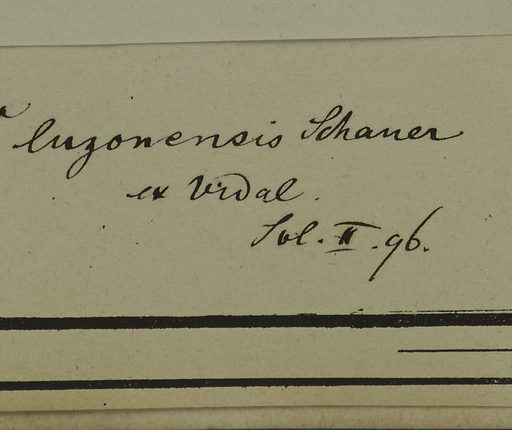 luzonensis Schauer
ex Vidal.
Sol. II. 96.